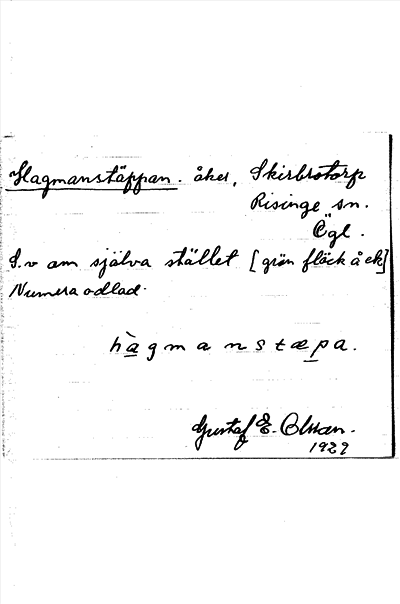 Hagmanstäppan. åker, Skirbstorp
Risinge sn.
Ögl.
S.v om själva stället [grön fläck å ek]
Numera odlad.
hàgmanstæpa.
Gustaf E. Olsson.
1929